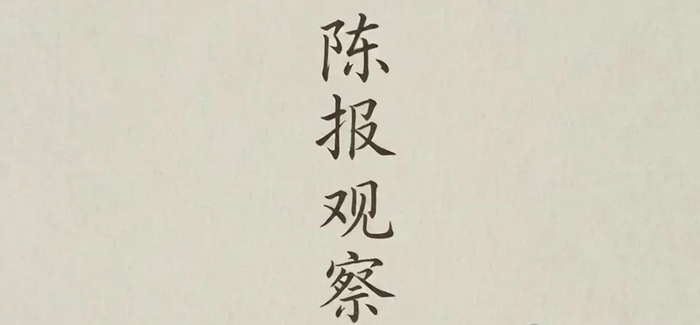 陈报观察